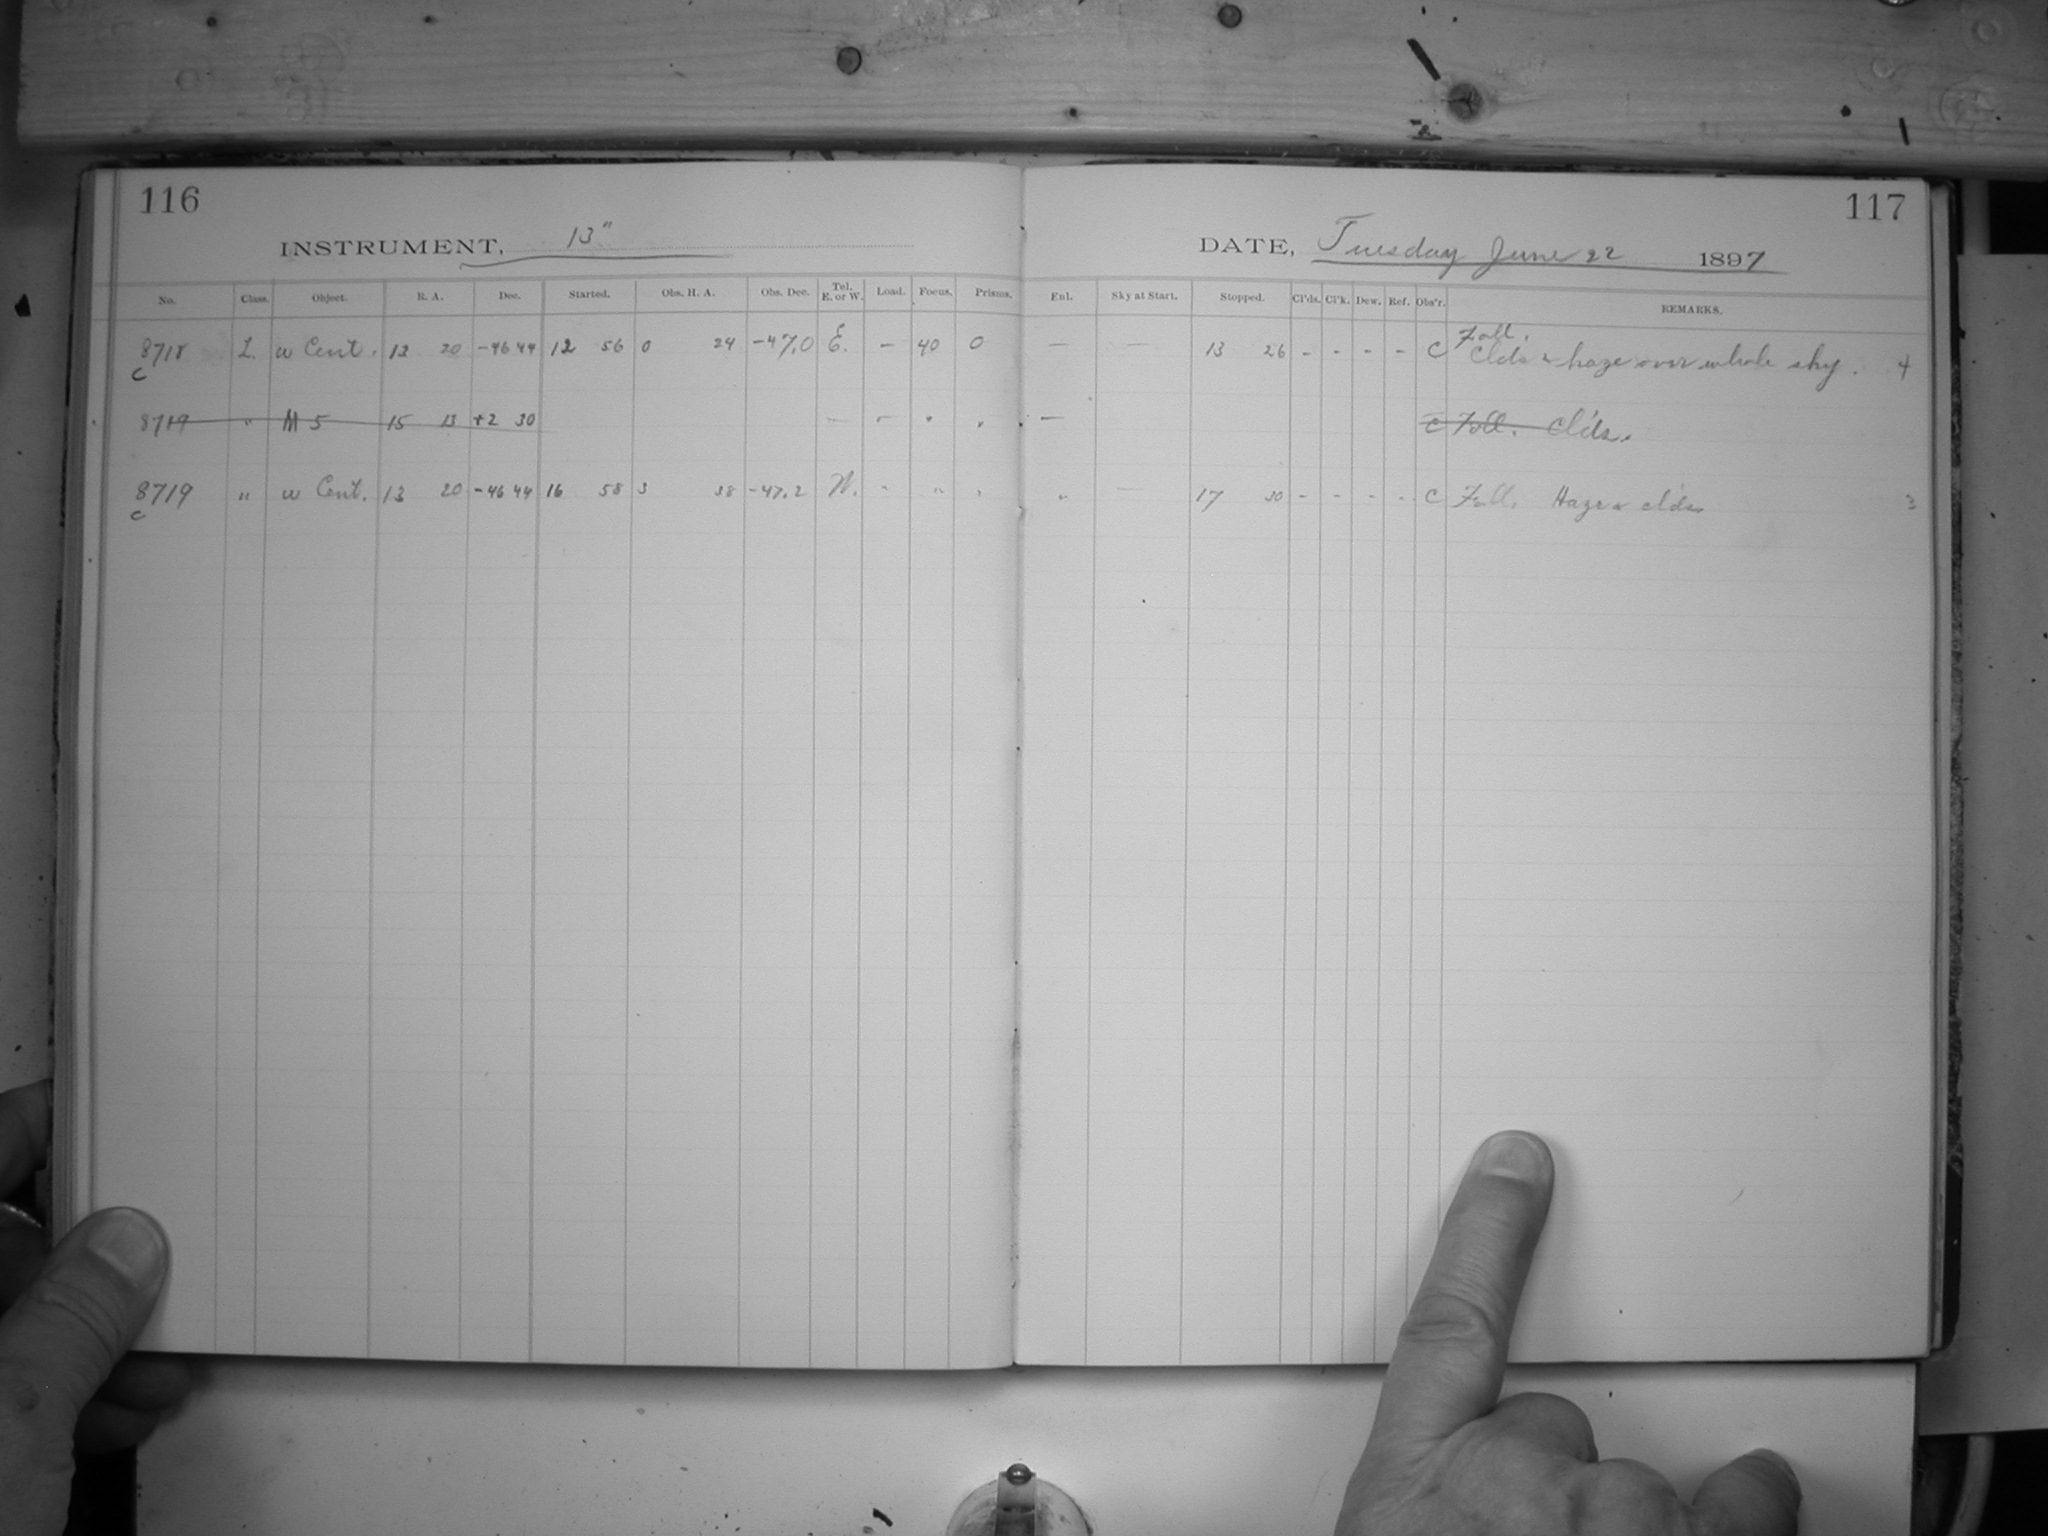 116
117
INSTRUMENT, 13"
DATE, Tuesday June 22 1897
No. Class. Object. R. A. Dec. Started. Obs. H. A. Obs. Dec. Tel. E. or W. Load. Focus. Prisms. Enl. Sky at Start. Stopped. Cl'ds. Cl'k. Dew. Ref. Obs'r. REMARKS.
8718 L. ω Cent. 13 20 -46 44 12 56 0 24 -47.0 E. - 40 0 — — 13 26 - - - - C Foll.
c Clds & haze over whole sky. 4
8719 " M 5 15 13 +2 30 — - " " — C Foll. Cl'ds.
8719 " ω Cent. 13 20 -46 44 16 58 3 38 -47.2 W. " " " " — 17 30 - - - - C Foll. Haze & clds 3
c